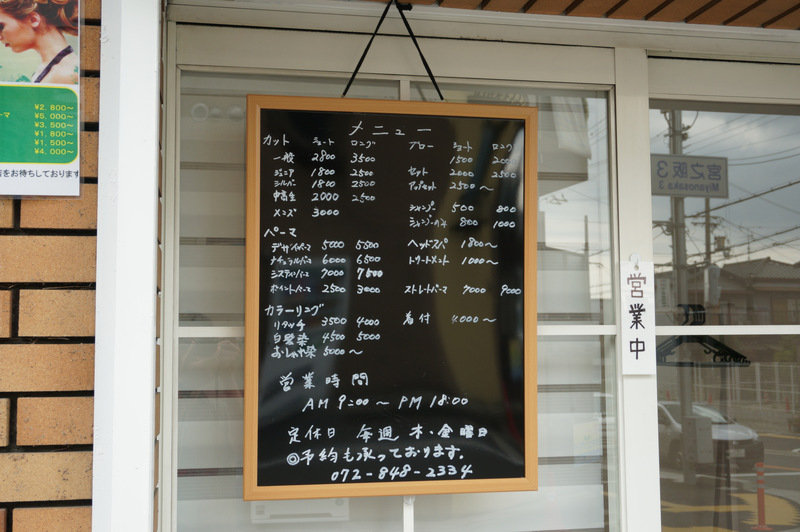 ¥2,800～
¥5,000～
マ ¥3,500～
¥1,800～
¥1,500～
¥4,000～
をお待ちしております
メニュー
カット ショート ロング
一般 2800 3500
ジュニア 1800 2500
シルバー 1800 2500
中高生 2000 2500
メンズ 3000
パーマ
デザインパーマ 5000 5500
ナチュラルパーマ 6000 6500
システムパーマ 7000 7500
ポイントパーマ 2500 3000
カラーリング
リタッチ 3500 4000
白髪染 4500 5000
おしゃれ染 5000～
ブロー ショート ロング
1500 2000
セット 2000 2500
アップセット 2500～
シャンプー 500 800
シャンプーのみ 800 1000
ヘッドスパ 1800～
トリートメント 1000～
ストレートパーマ 7000 9000
着付 4000～
営業時間
AM 9:00～PM 18:00
定休日 毎週 木・金曜日
◎予約も承っております。
072-848-2334
宮之阪3
Miyanosaka 3
営業中